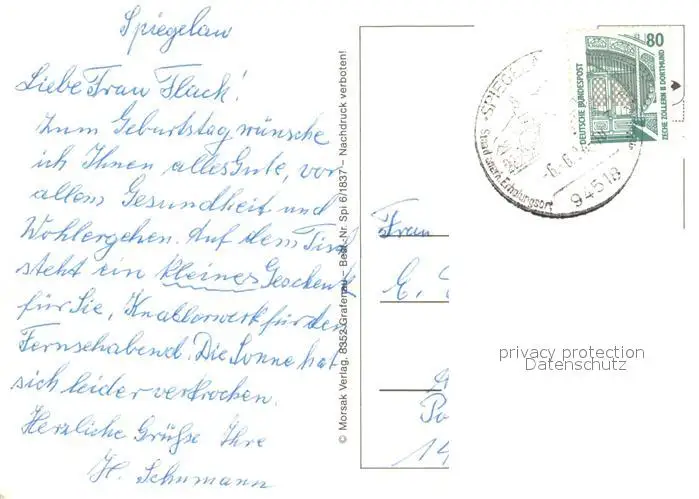 Spiegelau
Liebe Frau Flack!
Zum Geburtstag wünsche
ich Ihnen alles Gute, vor
allem Gesundheit und
Wohlergehen. Auf dem Tisch
steht ein kleines Geschenk
für Sie, Knabberwerk für den
Fernsehabend. Die Sonne hat
sich leider verkrochen.
Herzliche Grüße Ihre
H. Schumann
© Morsak Verlag, 8352 Grafenau – Best.-Nr. Spi 6/1837 – Nachdruck verboten!
Frau
E.
14
SPIEGELAU
Staatl. anerk. Erholungsort
94518
80
DEUTSCHE BUNDESPOST
ZECHE ZOLLERN II DORTMUND
privacy protection
Datenschutz